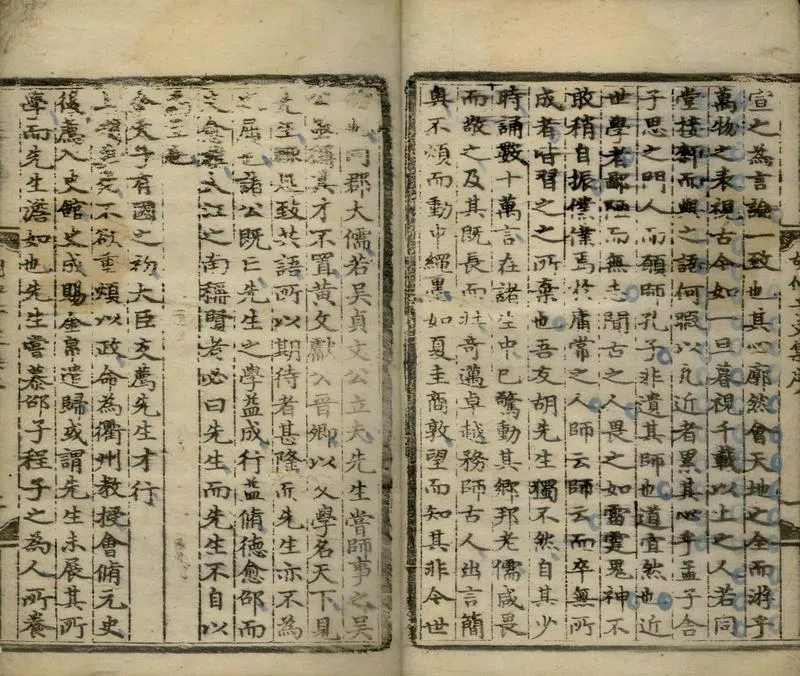 宣之為言論一致也其心廓然會天地之全而游乎
萬物之表視古今如一旦暮視千載以上之人若同
堂接鄰而與之語何暇以凡近者累其心乎孟子舍
子思之門人而願師孔子非遺其師也道宜然也近
世學者鄙陋而無志聞古之人畏之如雷霆鬼神不
敢稍自振僕僕焉於庸常之人師云師云而卒無所
成者皆習之之所棄也吾友胡先生獨不然自其少
時誦數十萬言在諸生中已驚動其鄉邦老儒咸畏
而敬之及其既長而壯奇邁卓越務師古人出言簡
奧不煩而動中繩墨如夏圭商敦望而知其非今世
同郡大儒若吳貞文公立夫先生嘗師事之吳
公亟稱其才不置黃文獻公晉卿以文學名天下見
先生輒是致其語所以期待者甚隆而先生亦不為
之屈也諸公既亡先生之學益成行益脩德愈邵而
文愈雄大江之南稱賢者必曰先生而先生不自以
為至也
今天子有國之初大臣交薦先生才行
上不欲重煩以政命為衢州教授會脩元史
復薦入史館史成賜金帛遣歸或謂先生未展其所
學而先生澹如也先生嘗慕邵子程子之為人所養